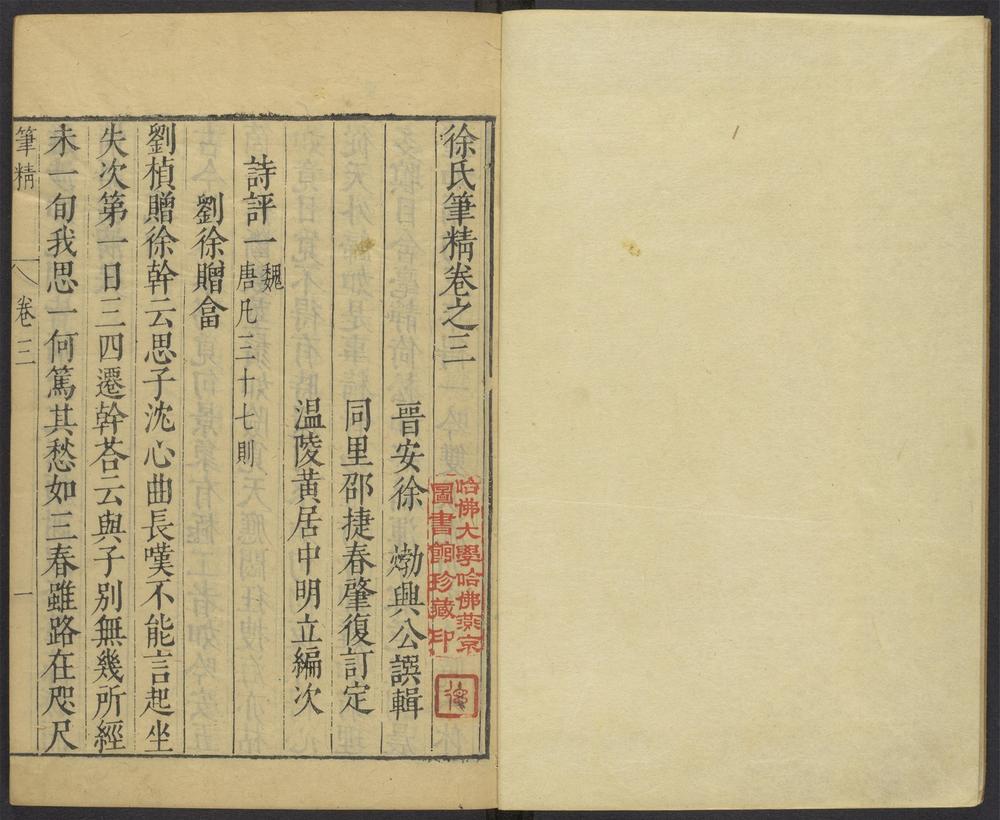 徐氏筆精卷之三
晋安徐 𤊹興公譔輯
同里邵捷春肇復訂定
温陵黄居中明立編次
詩評一 魏唐凡三十七則
劉徐贈畣
劉楨贈徐幹云思子沈心曲長嘆不能言起坐
失次第一日三四遷幹荅云與子別無幾所經
未一旬我思一何篤其愁如三春雖路在咫尺
筆精
卷三
一
哈佛大學哈佛燕京
圖書館珍藏印